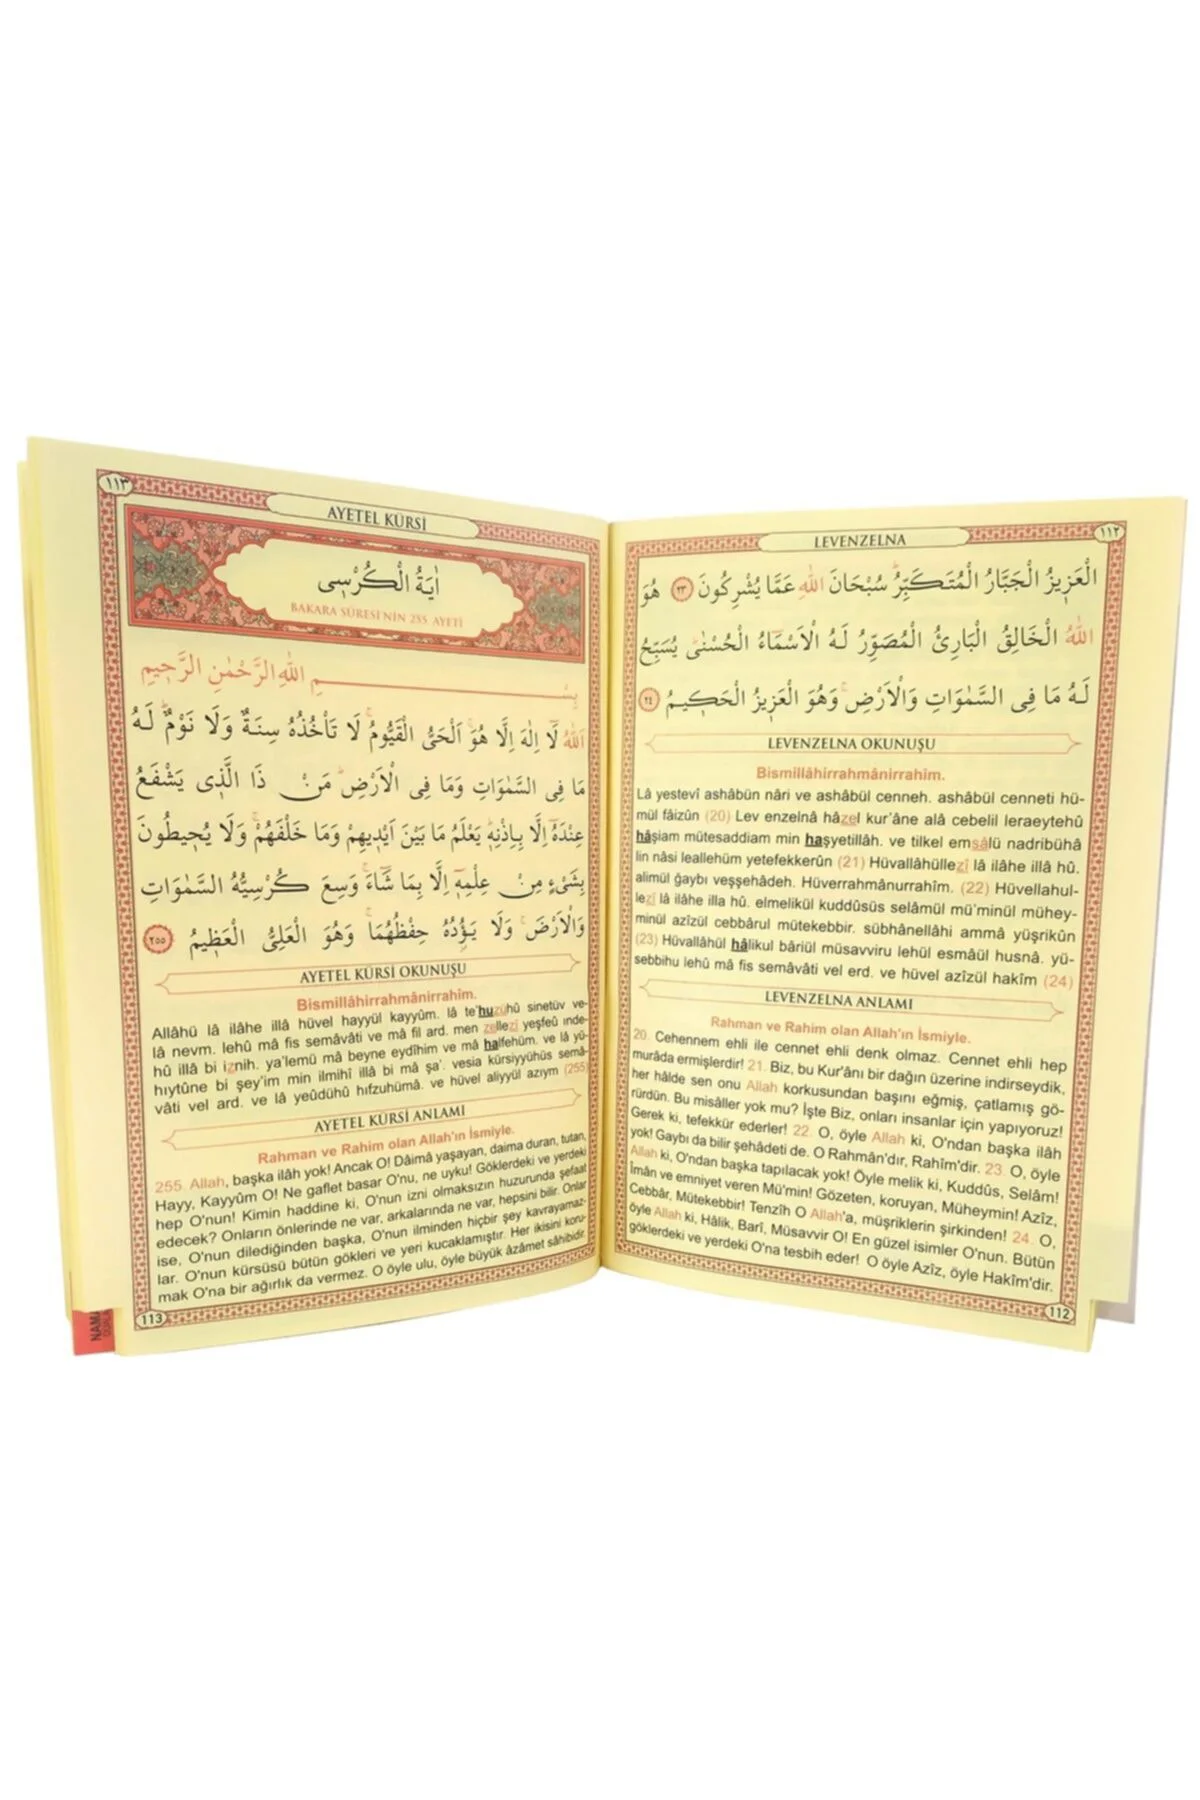 ١١٢
LEVENZELNA
الْعَزِيزُ الْجَبَّارُ الْمُتَكَبِّرُ سُبْحَانَ اللّٰهِ عَمَّا يُشْرِكُونَ ٢٣ هُوَ
اللّٰهُ الْخَالِقُ الْبَارِئُ الْمُصَوِّرُ لَهُ الْاَسْمَاءُ الْحُسْنٰى يُسَبِّحُ
لَهُ مَا فِى السَّمٰوَاتِ وَالْاَرْضِ وَهُوَ الْعَزِيزُ الْحَكِيمُ ٢٤
LEVENZELNA OKUNUŞU
Bismillâhirrahmânirrahîm.
Lâ yestevî ashâbün nâri ve ashâbül cenneh. ashâbül cenneti hü-
mül fâizûn (20) Lev enzelnâ hâzel kur'âne alâ cebelil leraeytehû
hâşiam mütesaddiam min haşyetillâh. ve tilkel emsâlü nadribühâ
lin nâsi leallehüm yetefekkerûn (21) Hüvallâhüllezî lâ ilâhe illâ hû.
alimül ğaybı veşşehâdeh. Hüverrahmânurrahîm. (22) Hüvellahul-
lezî lâ ilâhe illa hû. elmelikül kuddûsüs selâmül mü'minül mühey-
minül azîzül cebbârul mütekebbir. sübhânellâhi ammâ yüşrikûn
(23) Hüvallâhül hâlikul bâriül müsavviru lehül esmâül husnâ. yü-
sebbihu lehû mâ fis semâvâti vel erd. ve hüvel azîzül hakîm (24)
LEVENZELNA ANLAMI
Rahman ve Rahim olan Allah'ın İsmiyle.
20. Cehennem ehli ile cennet ehli denk olmaz. Cennet ehli hep
murâda ermişlerdir! 21. Biz, bu Kur'ânı bir dağın üzerine indirseydik,
her hâlde sen onu Allah korkusundan başını eğmiş, çatlamış gö-
rürdün. Bu misâller yok mu? İşte Biz, onları insanlar için yapıyoruz!
Gerek ki, tefekkür ederler! 22. O, öyle Allah ki, O'ndan başka ilâh
yok! Gaybı da bilir şehâdeti de. O Rahmân'dır, Rahîm'dir. 23. O, öyle
Allah ki, O'ndan başka tapılacak yok! Öyle melik ki, Kuddûs, Selâm!
Îmân ve emniyet veren Mü'min! Gözeten, koruyan, Müheymin! Azîz,
Cebbâr, Mütekebbir! Tenzîh O Allah'a, müşriklerin şirkinden! 24. O,
öyle Allah ki, Hâlik, Barî, Müsavvir O! En güzel isimler O'nun. Bütün
göklerdeki ve yerdeki O'na tesbih eder! O öyle Azîz, öyle Hakîm'dir.
112
١١٣
AYETEL KÜRSİ
اٰيَةُ الْكُرْسِى
BAKARA SÛRESİ'NİN 255 AYETİ
بِسْمِ اللّٰهِ الرَّحْمٰنِ الرَّحِيمِ
اَللّٰهُ لَا اِلٰهَ اِلَّا هُوَ اَلْحَىُّ الْقَيُّومُ لَا تَأْخُذُهُ سِنَةٌ وَلَا نَوْمٌ لَهُ
مَا فِى السَّمٰوَاتِ وَمَا فِى الْاَرْضِ مَنْ ذَا الَّذِى يَشْفَعُ
عِنْدَهُ اِلَّا بِاِذْنِهِ يَعْلَمُ مَا بَيْنَ اَيْدِيهِمْ وَمَا خَلْفَهُمْ وَلَا يُحِيطُونَ
بِشَىْءٍ مِنْ عِلْمِهِ اِلَّا بِمَا شَاءَ وَسِعَ كُرْسِيُّهُ السَّمٰوَاتِ
وَالْاَرْضَ وَلَا يَؤُدُهُ حِفْظُهُمَا وَهُوَ الْعَلِىُّ الْعَظِيمُ ٢٥٥
AYETEL KÜRSÎ OKUNUŞU
Bismillâhirrahmânirrahîm.
Allâhü lâ ilâhe illâ hüvel hayyül kayyûm. lâ te'huzühû sinetüv ve-
lâ nevm. lehû mâ fis semâvâti ve mâ fil ard. men zellezî yeşfeû ınde-
hû illâ bi iznih. ya'lemü mâ beyne eydîhim ve mâ halfehüm. ve lâ yü-
hıytûne bi şey'im min ilmihî illâ bi mâ şa'. vesia kürsiyyühüs semâ-
vâti vel ard. ve lâ yeûdühû hıfzuhümâ. ve hüvel aliyyül azıym (255)
AYETEL KÜRSÎ ANLAMI
Rahman ve Rahim olan Allah'ın İsmiyle.
255. Allah, başka ilâh yok! Ancak O! Dâimâ yaşayan, daima duran, tutan,
Hayy, Kayyûm O! Ne gaflet basar O'nu, ne uyku! Göklerdeki ve yerdeki
hep O'nun! Kimin haddine ki, O'nun izni olmaksızın huzurunda şefaat
edecek? Onların önlerinde ne var, arkalarında ne var, hepsini bilir. Onlar
ise, O'nun dilediğinden başka, O'nun ilminden hiçbir şey kavrayamaz-
lar. O'nun kürsüsü bütün gökleri ve yeri kucaklamıştır. Her ikisini koru-
mak O'na bir ağırlık da vermez. O öyle ulu, öyle büyük âzâmet sâhibidir.
113